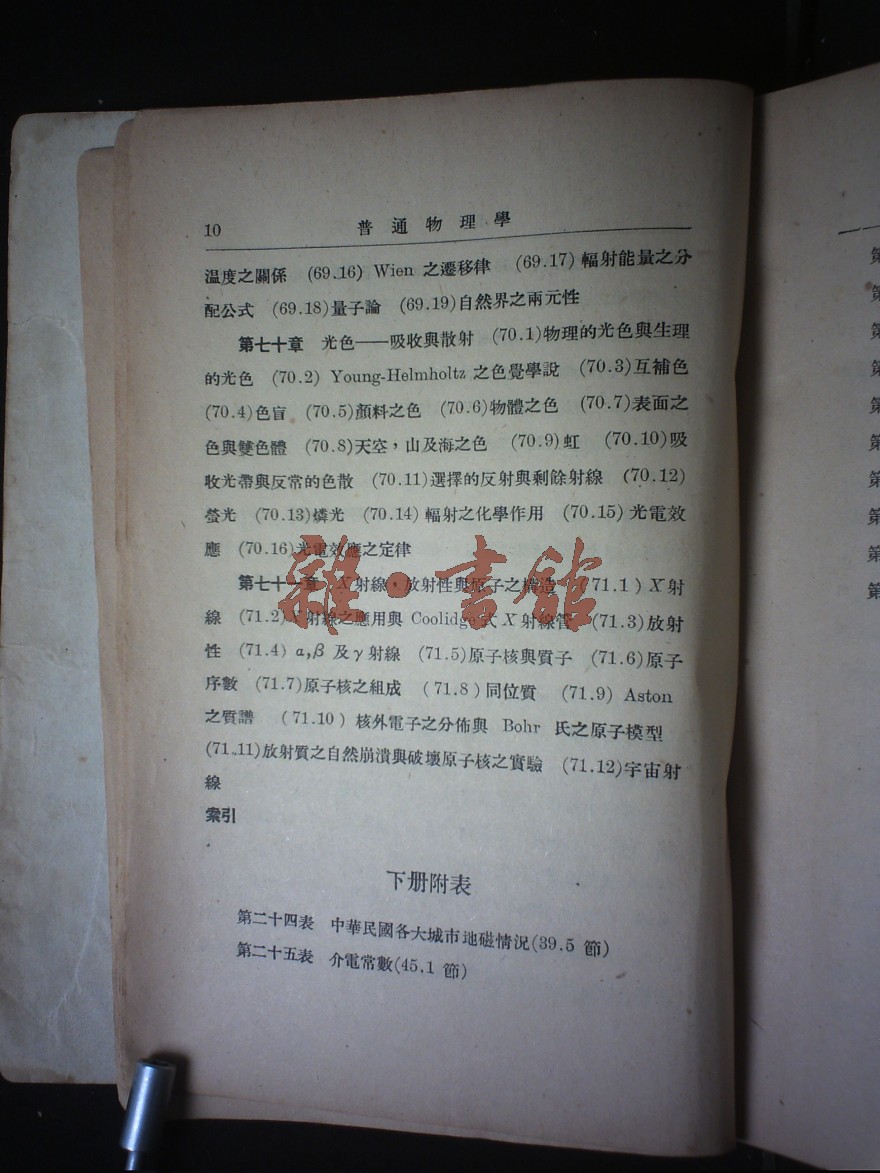 10 普通物理學
溫度之關係 (69.16) Wien 之遷移律 (69.17) 輻射能量之分
配公式 (69.18)量子論 (69.19)自然界之兩元性
第七十章 光色——吸收與散射 (70.1)物理的光色與生理
的光色 (70.2) Young-Helmholtz 之色覺學說 (70.3)互補色
(70.4)色盲 (70.5)顏料之色 (70.6)物體之色 (70.7)表面之
色與雙色體 (70.8)天空，山及海之色 (70.9)虹 (70.10)吸
收光帶與反常的色散 (70.11)選擇的反射與剩餘射線 (70.12)
螢光 (70.13)燐光 (70.14) 輻射之化學作用 (70.15) 光電效
應 (70.16)光電效應之定律
第七十一章 X射線，放射性與原子之構造 (71.1) X射
線 (71.2)X射線之應用與 Coolidge 式 X 射線管 (71.3)放射
性 (71.4) α,β 及 γ 射線 (71.5)原子核與質子 (71.6)原子
序數 (71.7)原子核之組成 (71.8)同位質 (71.9) Aston
之質譜 (71.10) 核外電子之分佈與 Bohr 氏之原子模型
(71.11)放射質之自然崩潰與破壞原子核之實驗 (71.12)宇宙射
線
索引
下册附表
第二十四表 中華民國各大城市地磁情況(39.5 節)
第二十五表 介電常數(45.1 節)
雜·書館
第
第
第
第
第
第
第
第
第
第